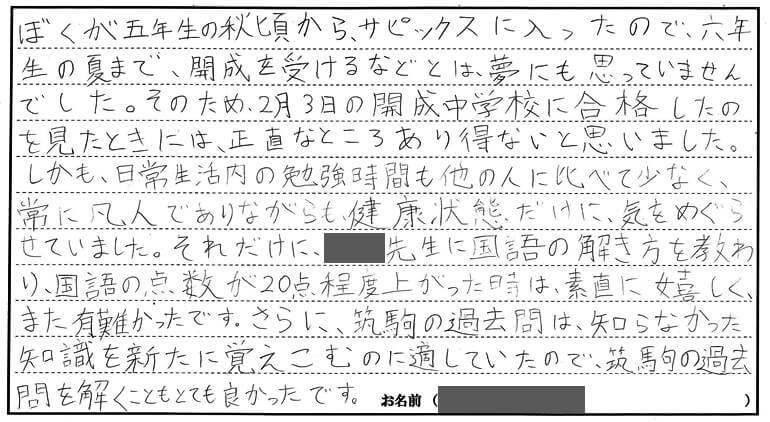 ぼくが五年生の秋頃から、サピックスに入ったので、六年
生の夏まで、開成を受けるなどとは、夢にも思っていません
でした。そのため、2月3日の開成中学校に合格したの
を見たときには、正直なところあり得ないと思いました。
しかも、日常生活内の勉強時間も他の人に比べて少なく、
常に凡人でありながらも、健康状態だけに、気をめぐら
せていました。それだけに、先生に国語の解き方を教わ
り、国語の点数が20点程度上がった時は、素直に嬉しく、
また有難かったです。さらに、筑駒の過去問は、知らなかった
知識を新たに覚えこむのに適していたので、筑駒の過去
問を解くこともとても良かったです。 お名前（ ）